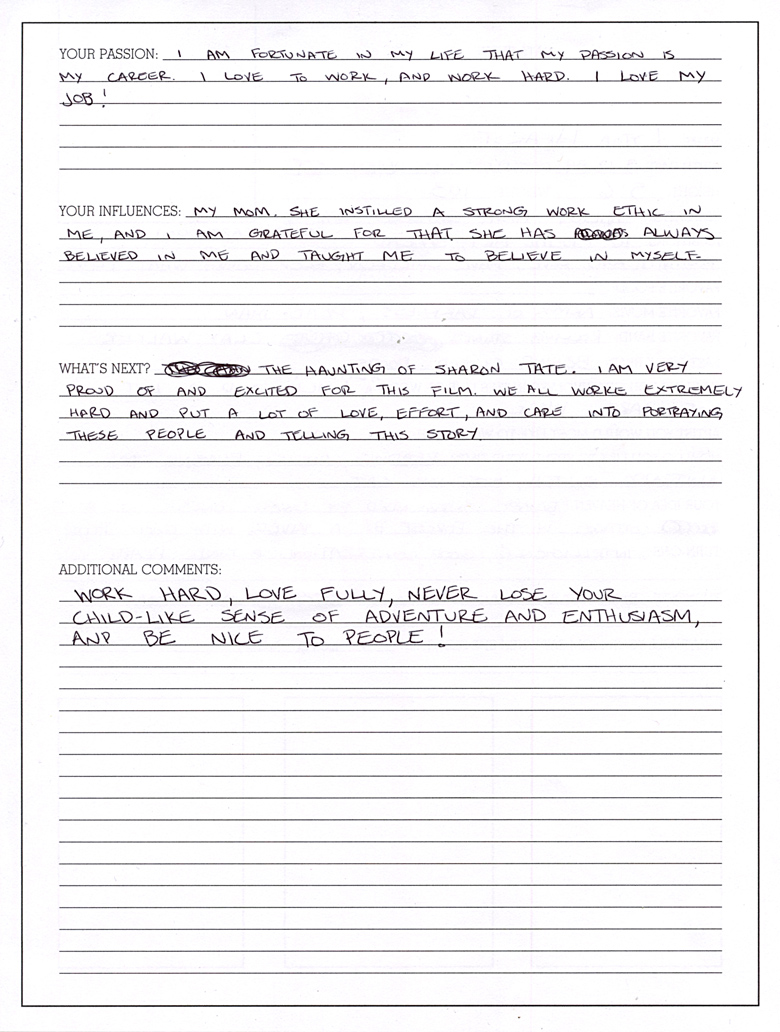 YOUR PASSION: I AM FORTUNATE IN MY LIFE THAT MY PASSION IS
MY CAREER. I LOVE TO WORK, AND WORK HARD. I LOVE MY
JOB!
YOUR INFLUENCES: MY MOM. SHE INSTILLED A STRONG WORK ETHIC IN
ME, AND I AM GRATEFUL FOR THAT. SHE HAS ALWAYS
BELIEVED IN ME AND TAUGHT ME TO BELIEVE IN MYSELF.
WHAT'S NEXT? THE HAUNTING OF SHARON TATE. I AM VERY
PROUD OF AND EXCITED FOR THIS FILM. WE ALL WORKE EXTREMELY
HARD AND PUT A LOT OF LOVE, EFFORT, AND CARE INTO PORTRAYING
THESE PEOPLE AND TELLING THIS STORY.
ADDITIONAL COMMENTS:
WORK HARD, LOVE FULLY, NEVER LOSE YOUR
CHILD-LIKE SENSE OF ADVENTURE AND ENTHUSIASM,
AND BE NICE TO PEOPLE!